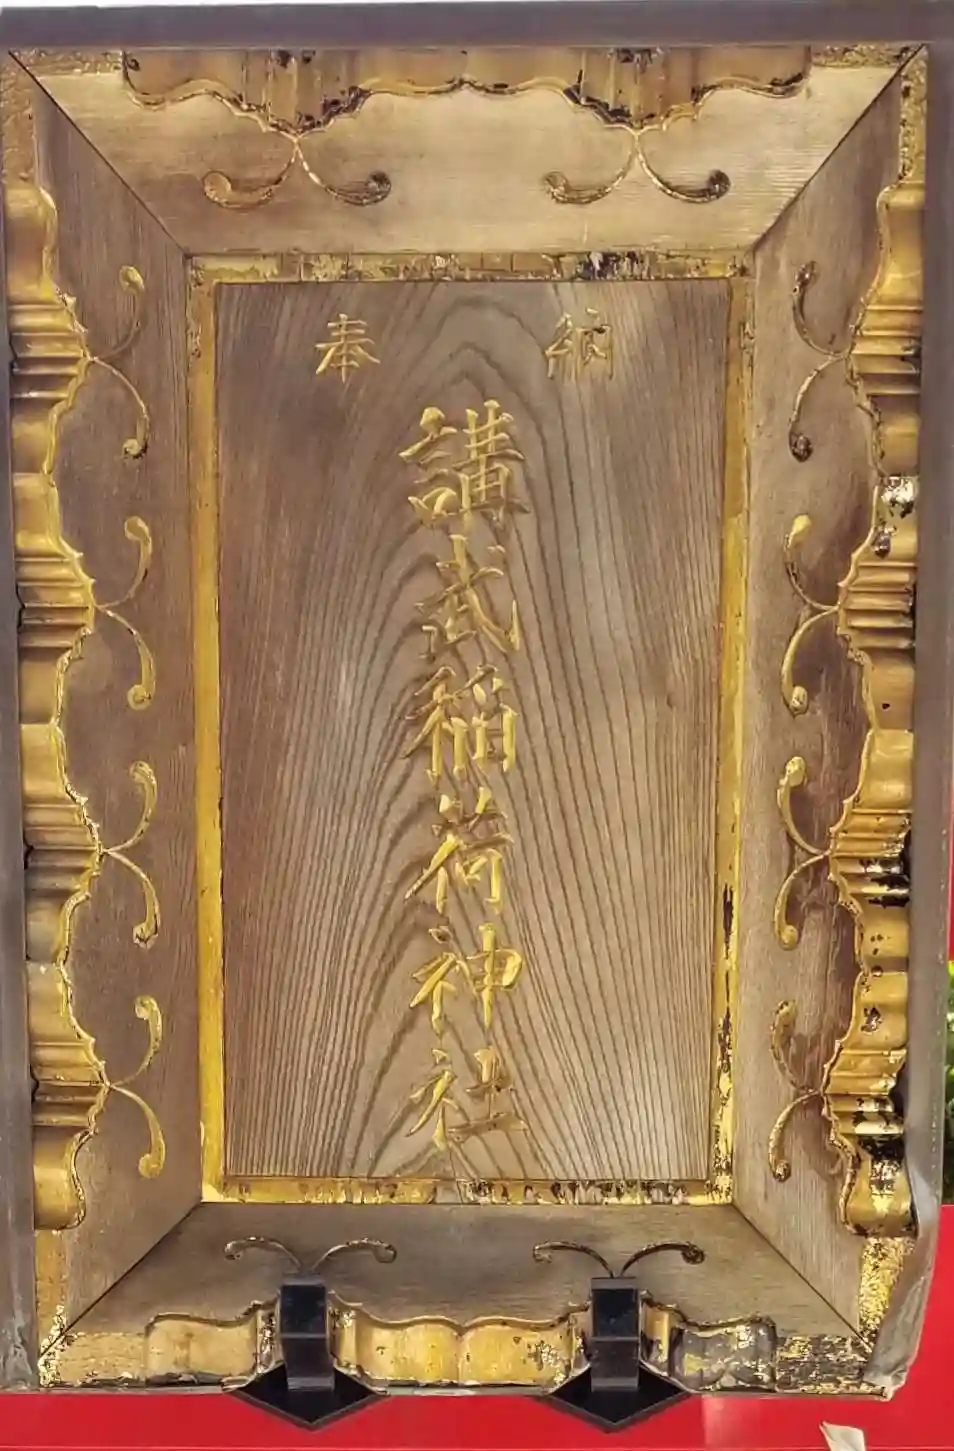 奉納
講武稲荷神社